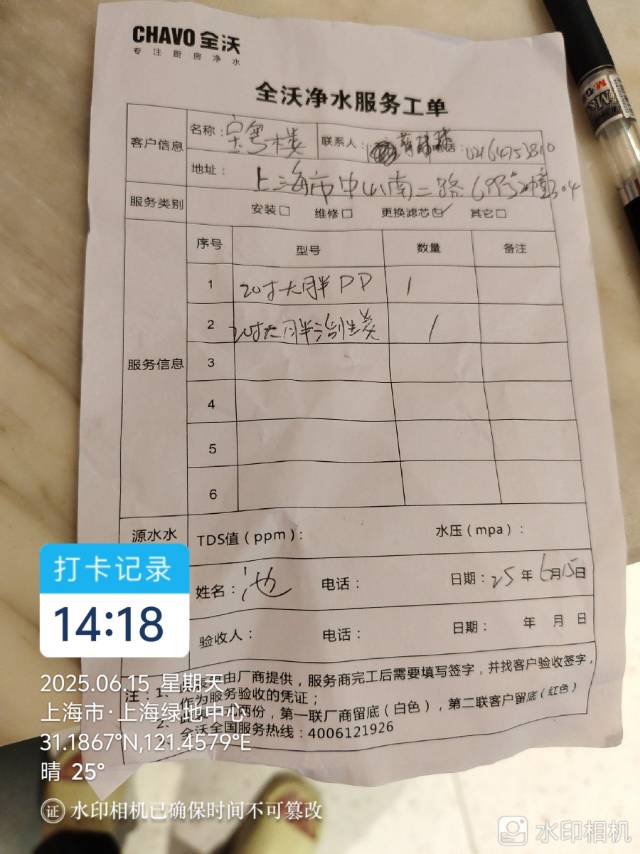 CHAVO 全沃
专注厨房净水
全沃净水服务工单
客户信息 名称: 粤楼 联系人:
地址: 上海市中山南二路
服务类别 安装□ 维修□ 更换滤芯☑ 其它□
服务信息 序号 型号 数量 备注
1 20寸大胖PP 1
2 20寸大胖活性炭 1
3
4
5
6
源水水 TDS值(ppm): 水压(mpa):
姓名: 池 电话: 日期: 25年6月15日
验收人: 电话: 日期: 年 月 日
注: 1、 由厂商提供,服务商完工后需要填写签字,并找客户验收签字,
作为服务验收的凭证;
2、 两份,第一联厂商留底(白色),第二联客户留底(红色)
全沃全国服务热线:4006121926
打卡记录
14:18
2025.06.15 星期天
上海市·上海绿地中心
31.1867°N,121.4579°E
晴 25°
证 水印相机已确保时间不可篡改
水印相机